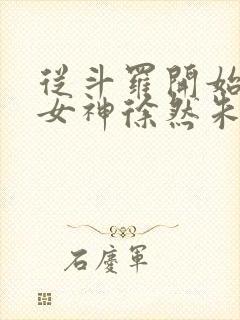 從斗羅開始
女神徐然朱
石慶軍